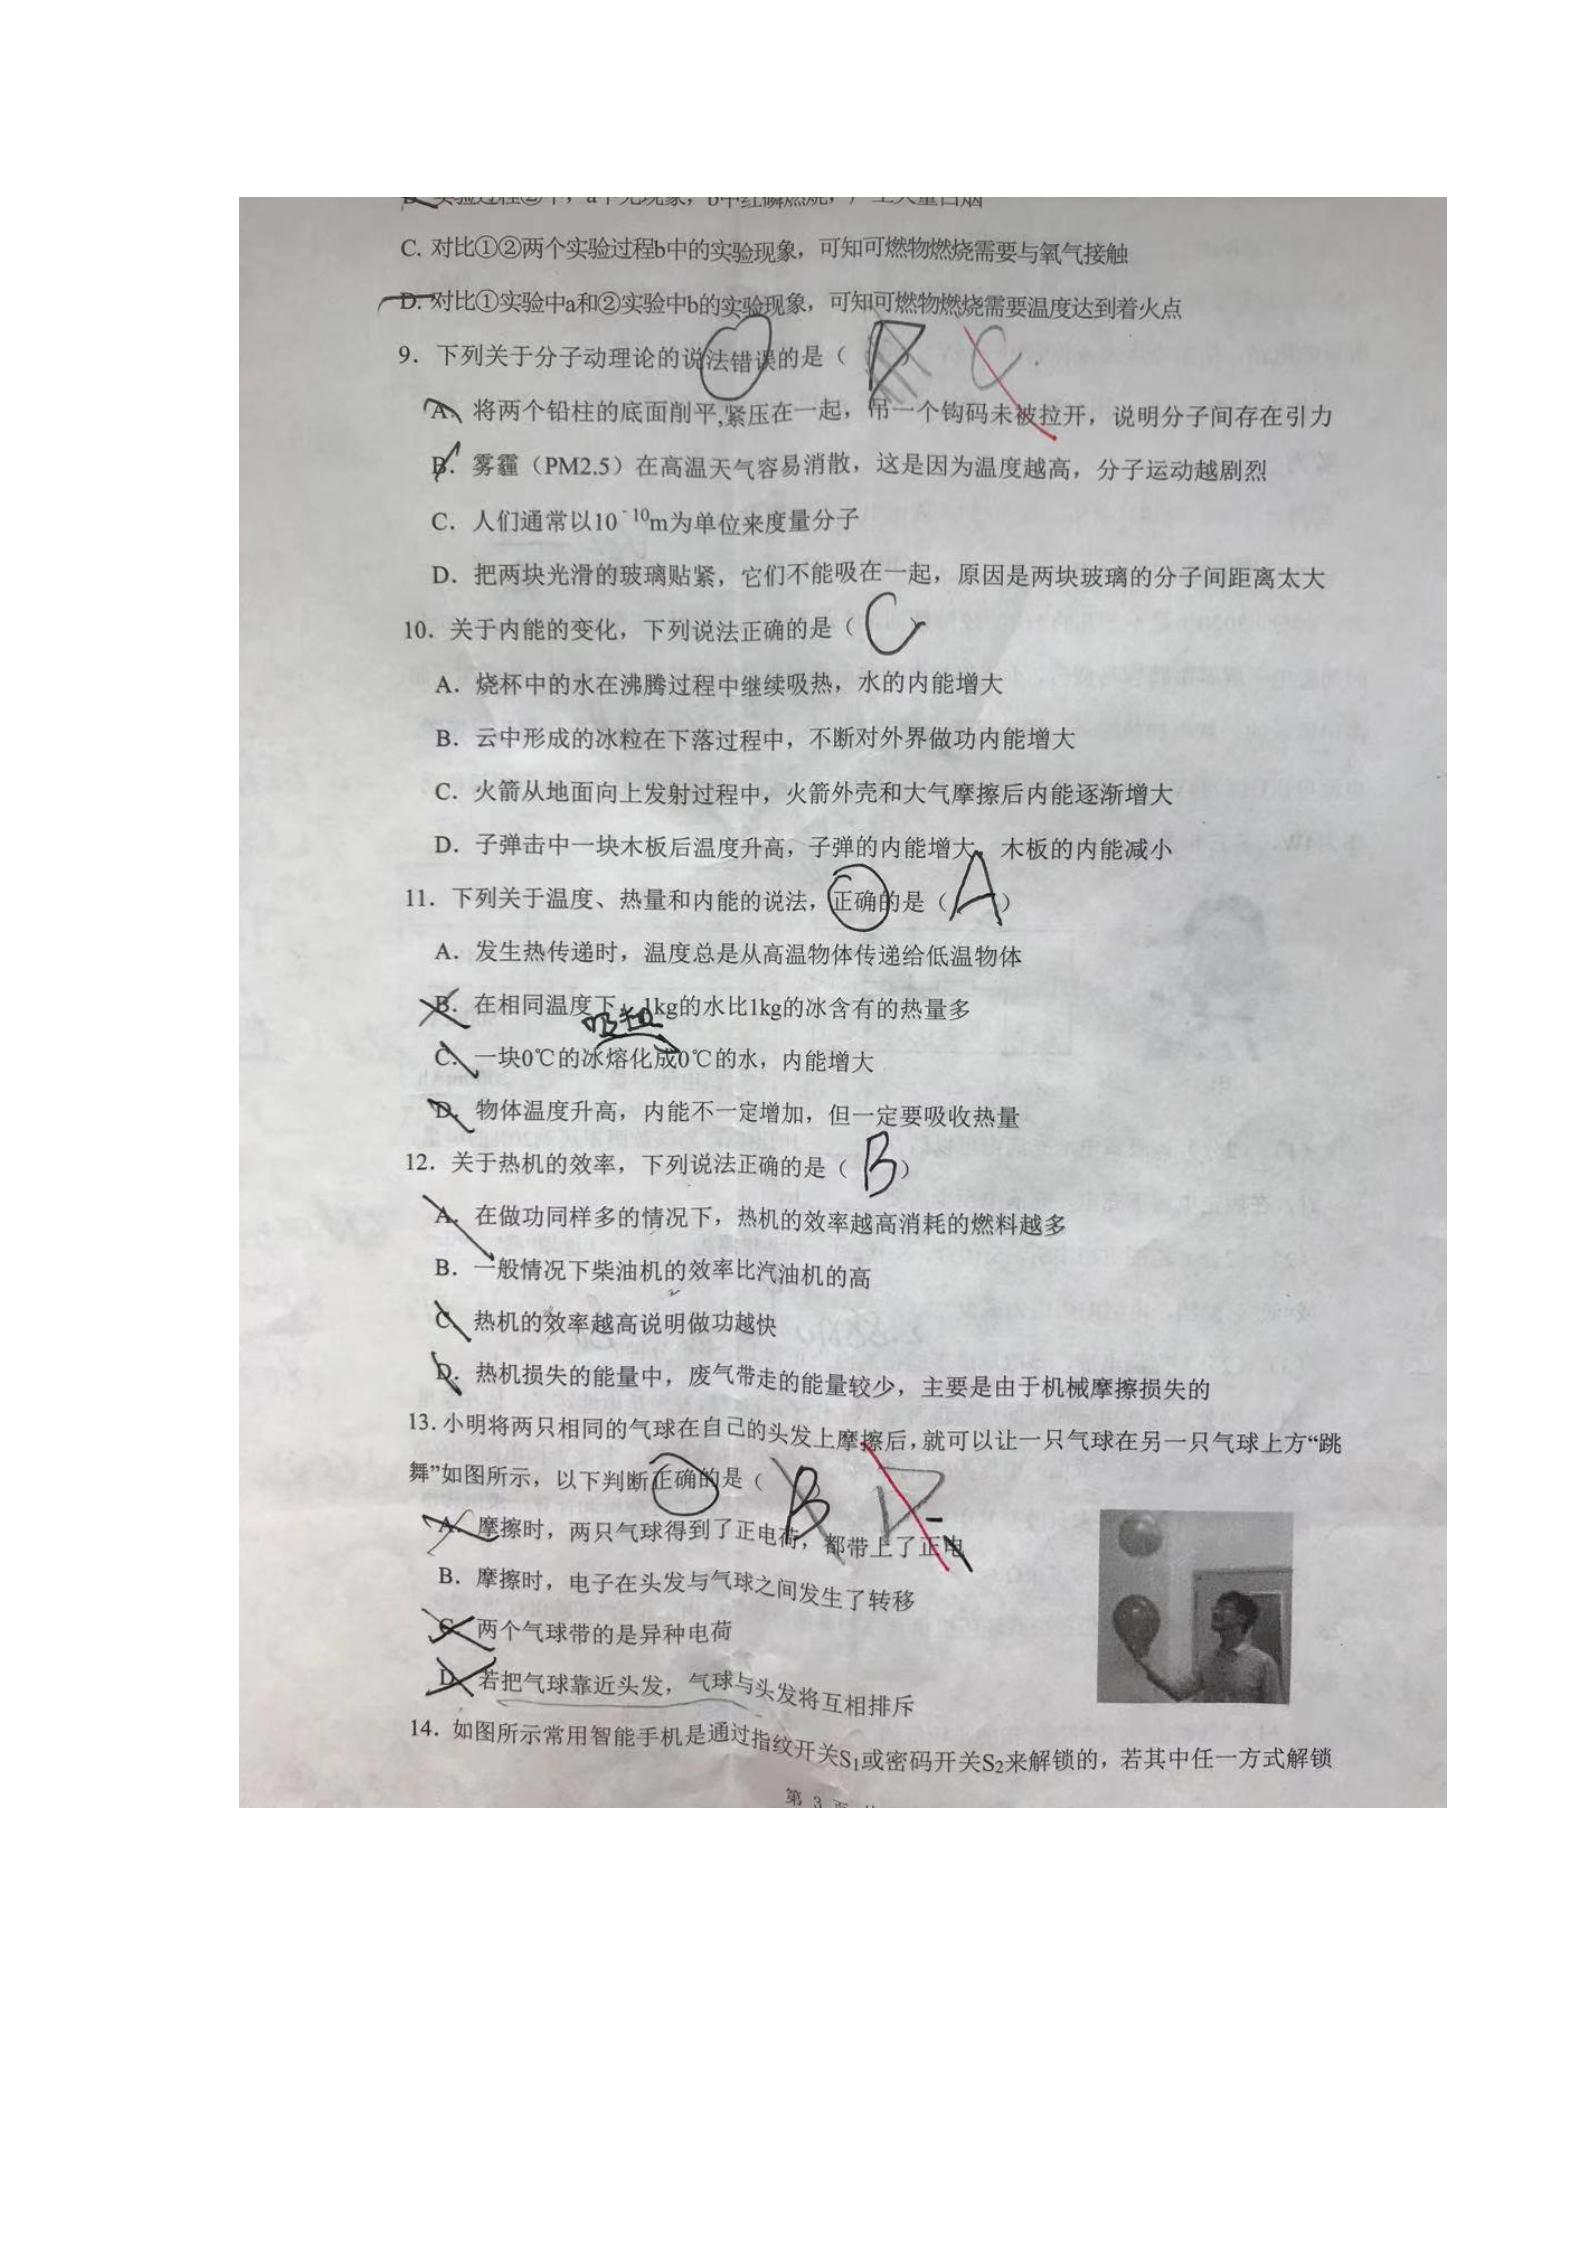 B. 实验过程②中，a中无现象，b中红磷燃烧，产生大量白烟
C. 对比①②两个实验过程b中的实验现象，可知可燃物燃烧需要与氧气接触
D. 对比①实验中a和②实验中b的实验现象，可知可燃物燃烧需要温度达到着火点
9．下列关于分子动理论的说法错误的是（ ） C
A．将两个铅柱的底面削平,紧压在一起，吊一个钩码未被拉开，说明分子间存在引力
B．雾霾（PM2.5）在高温天气容易消散，这是因为温度越高，分子运动越剧烈
C．人们通常以10⁻¹⁰m为单位来度量分子
D．把两块光滑的玻璃贴紧，它们不能吸在一起，原因是两块玻璃的分子间距离太大
10．关于内能的变化，下列说法正确的是（ C ）
A．烧杯中的水在沸腾过程中继续吸热，水的内能增大
B．云中形成的冰粒在下落过程中，不断对外界做功内能增大
C．火箭从地面向上发射过程中，火箭外壳和大气摩擦后内能逐渐增大
D．子弹击中一块木板后温度升高，子弹的内能增大，木板的内能减小
11．下列关于温度、热量和内能的说法，正确的是（ A ）
A．发生热传递时，温度总是从高温物体传递给低温物体
B．在相同温度下，1kg的水比1kg的冰含有的热量多
吸热
C．一块0℃的冰熔化成0℃的水，内能增大
D．物体温度升高，内能不一定增加，但一定要吸收热量
12．关于热机的效率，下列说法正确的是（ B ）
A．在做功同样多的情况下，热机的效率越高消耗的燃料越多
B．一般情况下柴油机的效率比汽油机的高
C．热机的效率越高说明做功越快
D．热机损失的能量中，废气带走的能量较少，主要是由于机械摩擦损失的
13. 小明将两只相同的气球在自己的头发上摩擦后，就可以让一只气球在另一只气球上方“跳
舞”如图所示，以下判断正确的是（ B D
A．摩擦时，两只气球得到了正电荷，都带上了正电
B．摩擦时，电子在头发与气球之间发生了转移
C．两个气球带的是异种电荷
D．若把气球靠近头发，气球与头发将互相排斥
14．如图所示常用智能手机是通过指纹开关S₁或密码开关S₂来解锁的，若其中任一方式解锁
第 3 页